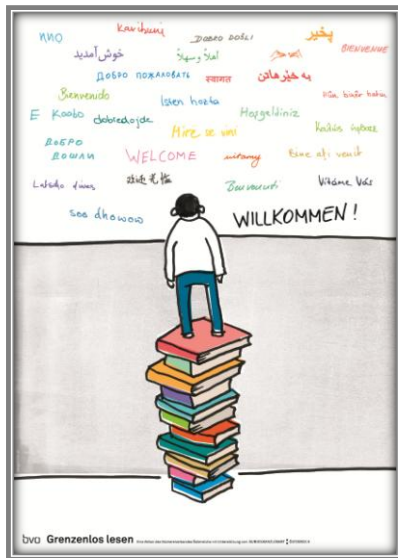 Karibuni
DOBRO DOŠLI
پخیر
خوش آمدید
أهلاً وسهلاً
BIENVENUE
ДОБРО ПОЖАЛОВАТЬ
स्वागत
به خێر هاتن
Bienvenido
Isten hozta
E Kaabo
dobredojde
Hoşgeldiniz
Mirë se vini
ДОБРО
ДОШЛИ
WELCOME
witamy
Bine aţi venit
Benvenuti
Vítáme Vás
soo dhowow
WILLKOMMEN!
bvö Grenzenlos lesen